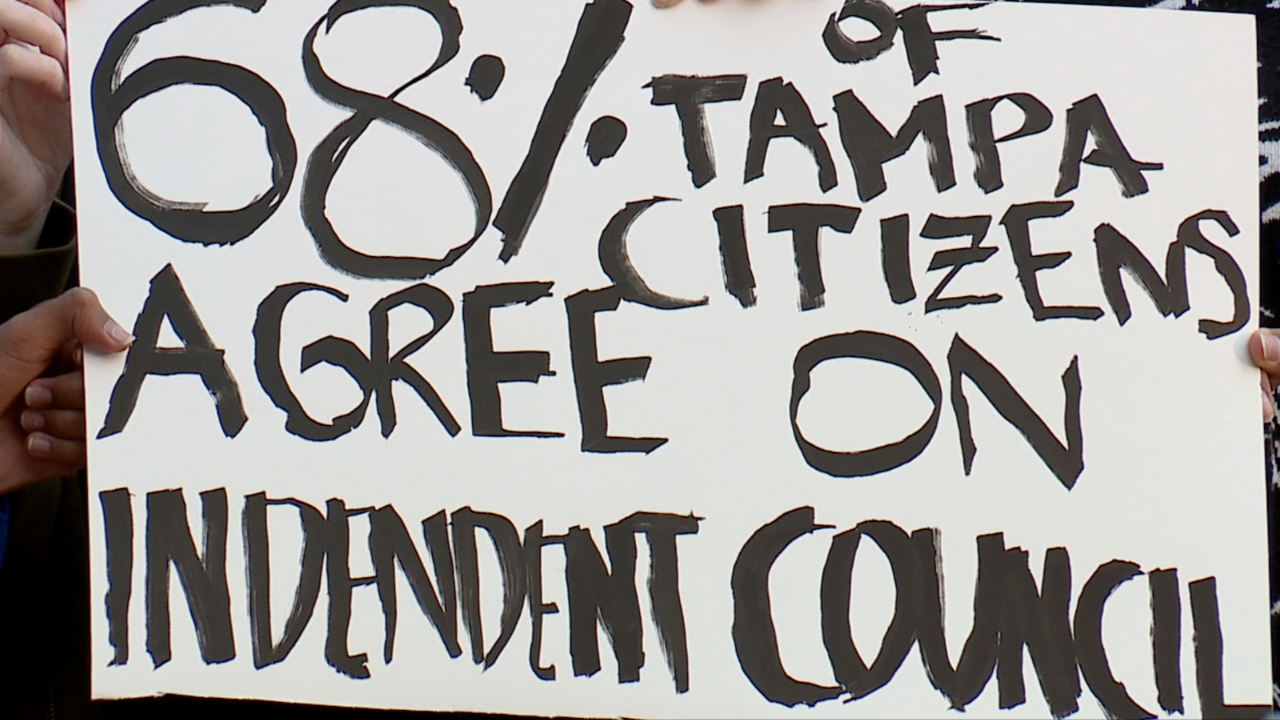 68% OF
TAMPA
CITIZENS
AGREE ON
INDENDENT COUNCIL